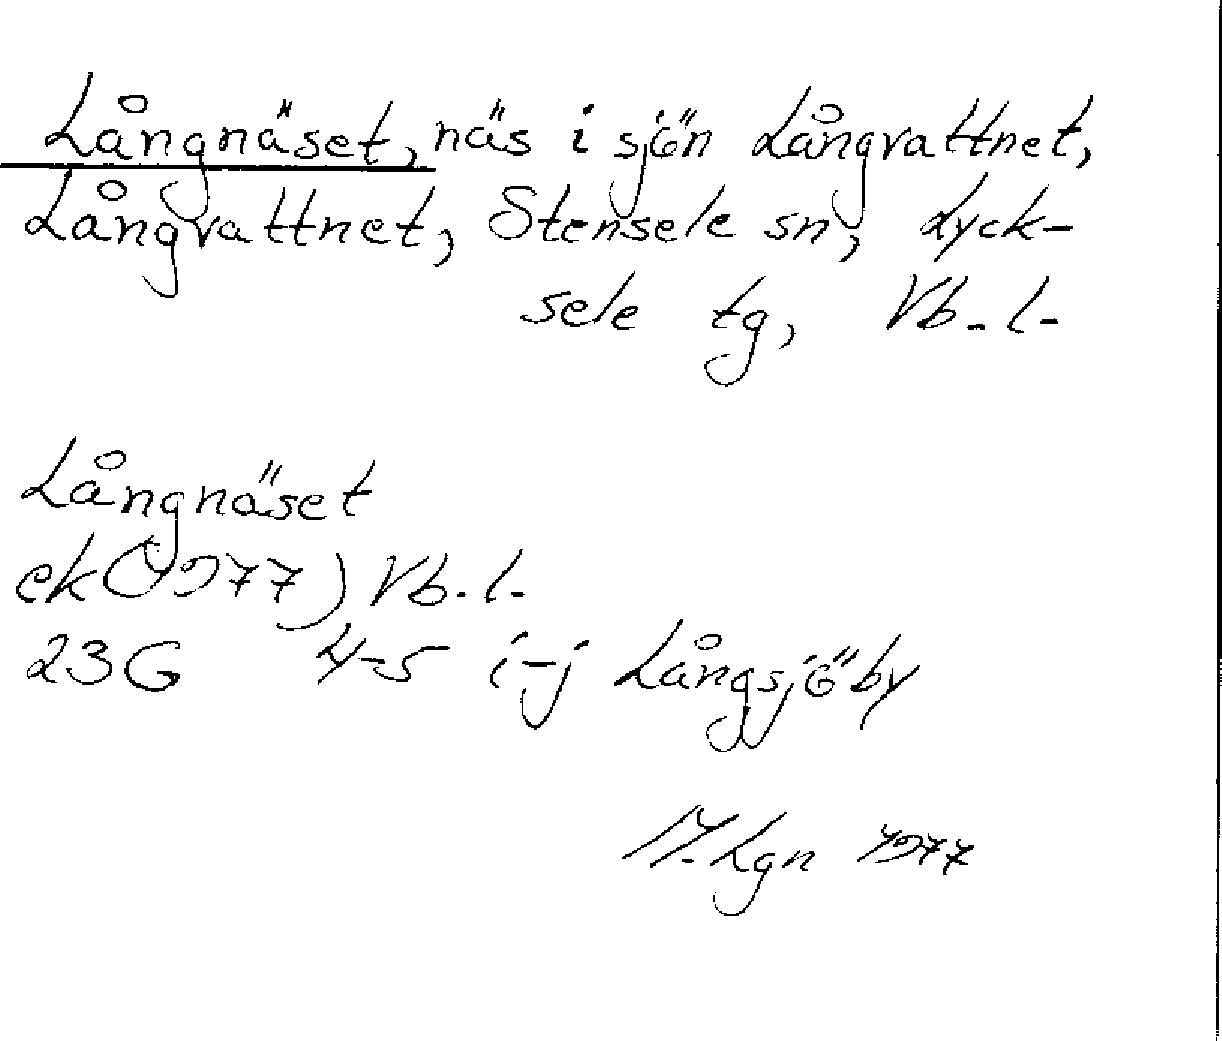 Långnäset, näs i sjön Långvattnet,
Långvattnet, Stensele sn, Lyck-
sele tg, Vb. l.
Långnäset
ek (1977) Vb. l.
23G 4-5 i-j Långsjöby
M. Lgn 1977